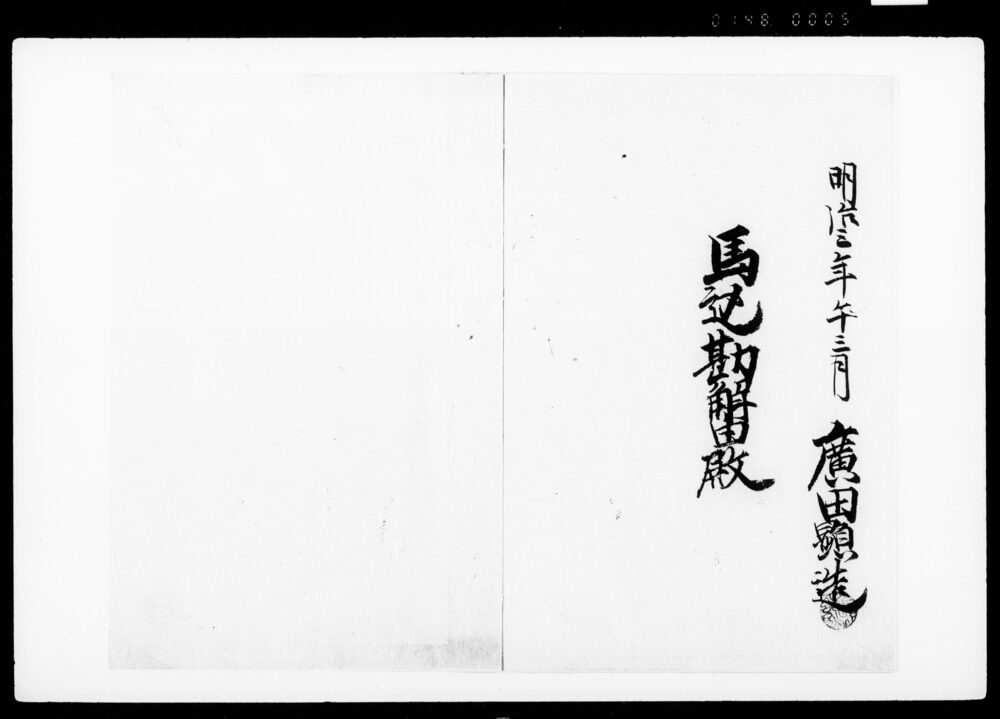 0148 0005
明治三年午三月
廣田顕造
馬込勘解由殿